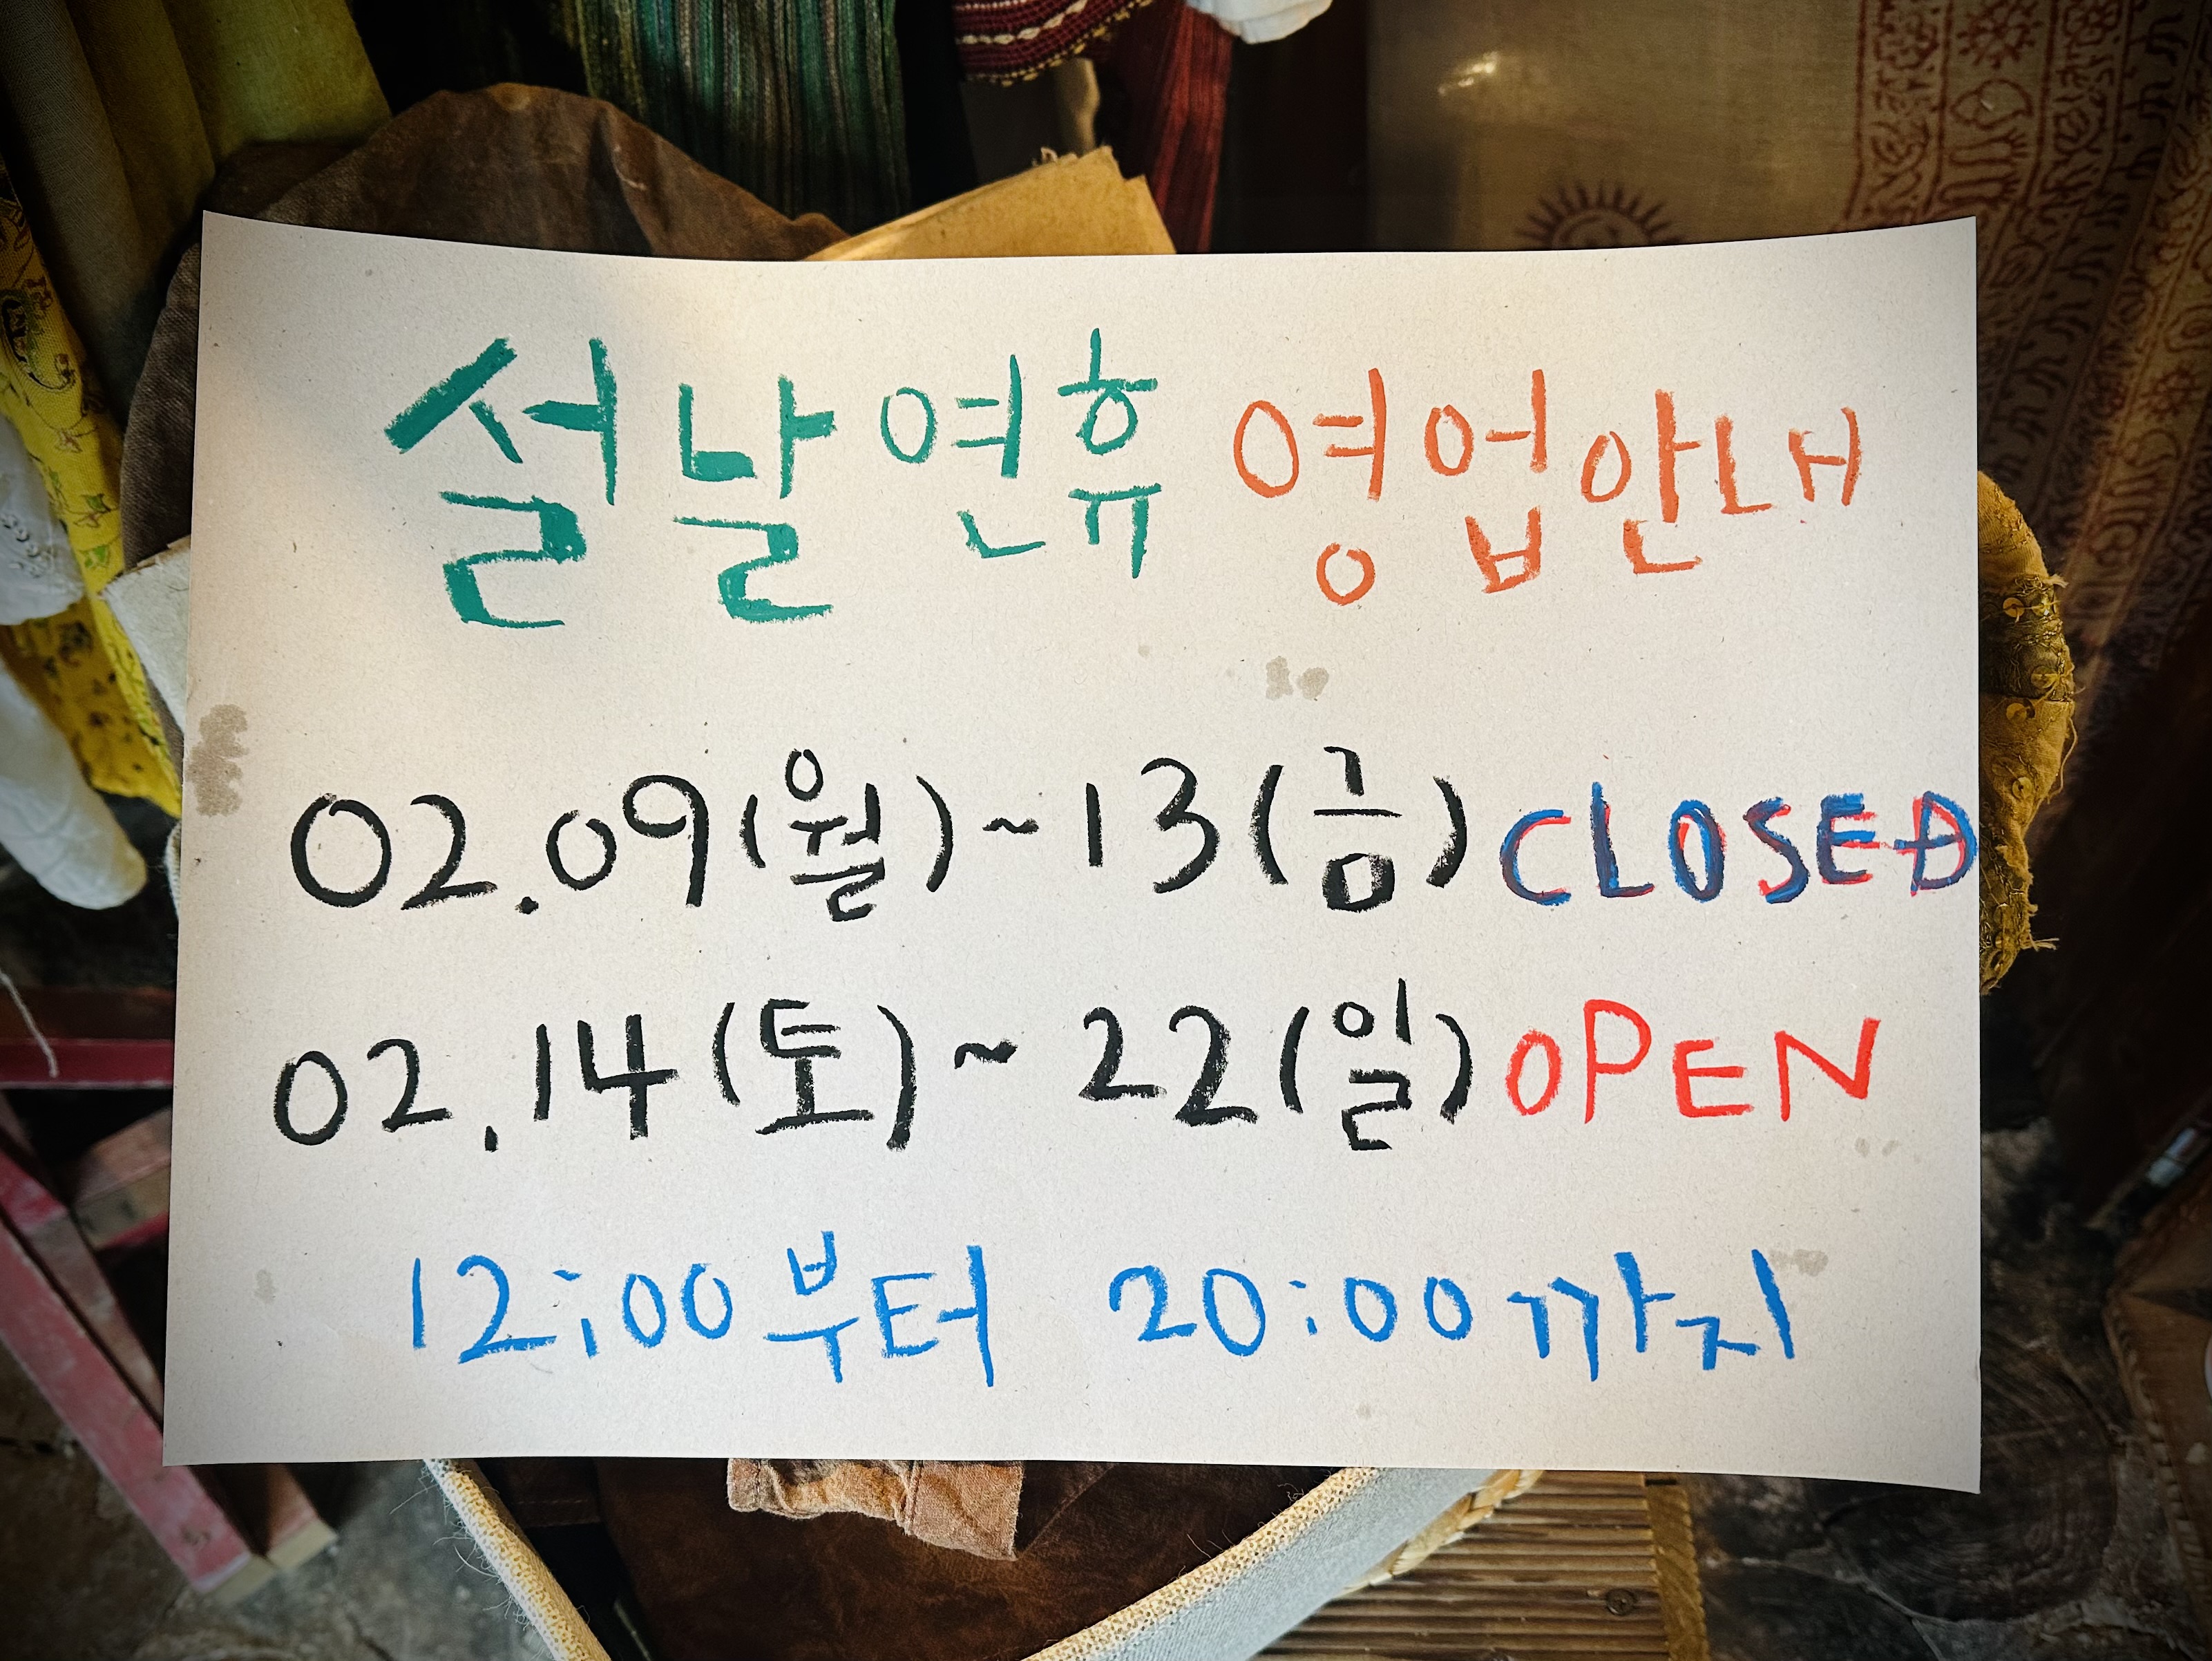 설날연휴 영업안내
02.09(월)~13(금)CLOSED
02.14(토)~22(일)OPEN
12:00부터 20:00까지